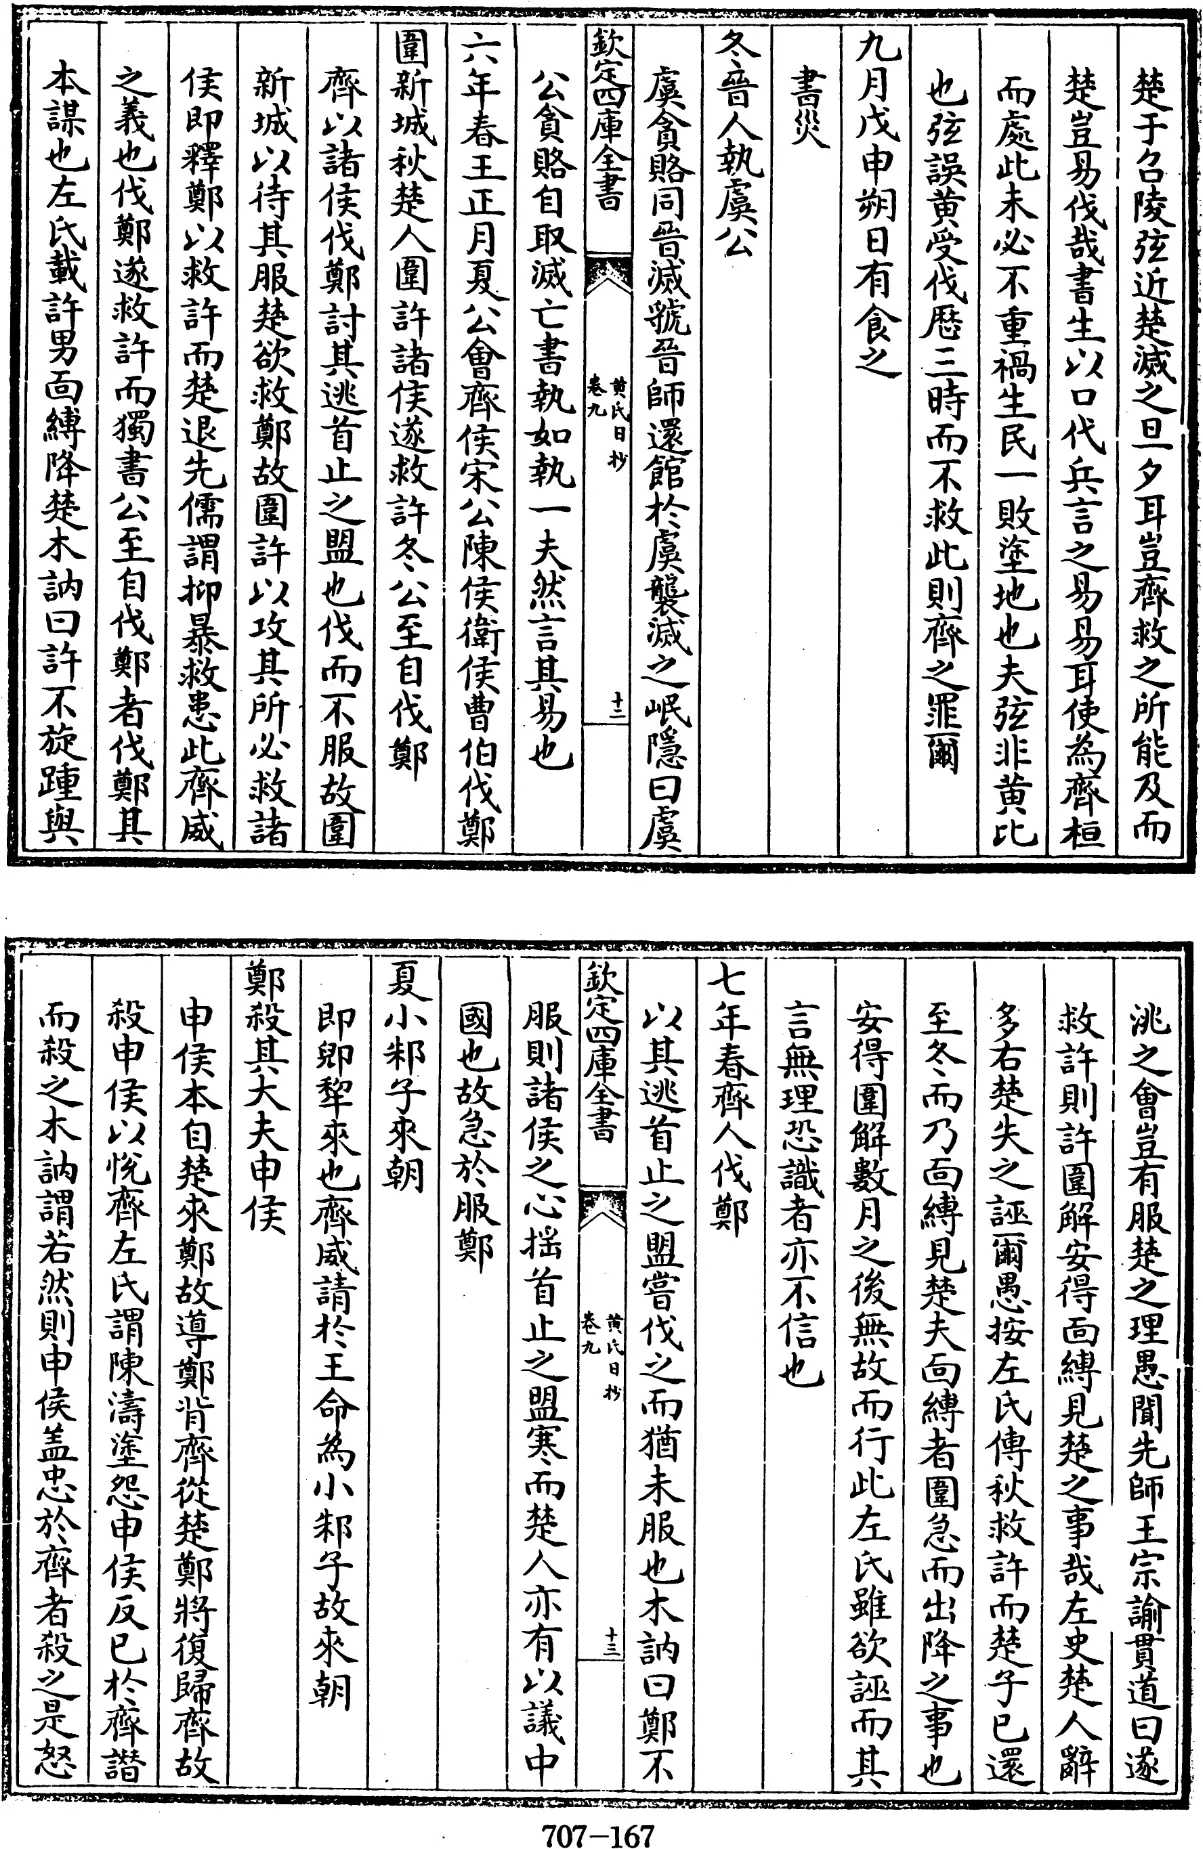 楚于召陵弦近楚滅之旦夕耳豈齊救之所能及而
楚豈易伐哉書生以口代兵言之易易耳使為齊桓
而處此未必不重禍生民一敗塗地也夫弦非黄比
也弦誤黄受伐歴三時而不救此則齊之罪爾
九月戊申朔日有食之
書災
冬晉人執虞公
虞貪賂同晉滅虢晉師還館於虞襲滅之岷隱曰虞
欽定四庫全書
黄氏日抄
卷九
十二
公貪賂自取滅亡書執如執一夫然言其易也
六年春王正月夏公會齊侯宋公陳侯衛侯曹伯伐鄭
圍新城秋楚人圍許諸侯遂救許冬公至自伐鄭
齊以諸侯伐鄭討其逃首止之盟也伐而不服故圍
新城以待其服楚欲救鄭故圍許以攻其所必救諸
侯即釋鄭以救許而楚退先儒謂抑暴救患此齊威
之義也伐鄭遂救許而獨書公至自伐鄭者伐鄭其
本謀也左氏載許男面縛降楚木訥曰許不旋踵與
洮之會豈有服楚之理愚聞先師王宗諭貫道曰遂
救許則許圍解安得面縛見楚之事哉左史楚人辭
多右楚失之誣爾愚按左氏傳秋救許而楚子已還
至冬而乃面縛見楚夫面縛者圍急而出降之事也
安得圍解數月之後無故而行此左氏雖欲誣而其
言無理恐識者亦不信也
七年春齊人伐鄭
以其逃首止之盟嘗伐之而猶未服也木訥曰鄭不
欽定四庫全書
黄氏日抄
卷九
十三
服則諸侯之心揺首止之盟寒而楚人亦有以議中
國也故急於服鄭
夏小邾子來朝
即郳犂來也齊威請於王命為小邾子故來朝
鄭殺其大夫申侯
申侯本自楚來鄭故導鄭背齊從楚鄭將復歸齊故
殺申侯以悅齊左氏謂陳濤塗怨申侯反已於齊譖
而殺之木訥謂若然則申侯盖忠於齊者殺之是怒
707-167